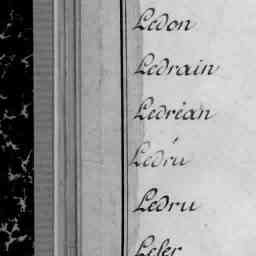 Ledon
Ledrain
Ledréan
Ledrú
Ledru